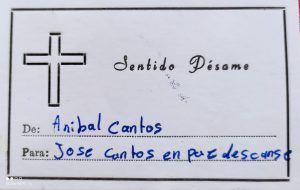 Sentido Pésame
De: Anibal Cantos
Para: Jose Cantos en paz descanse